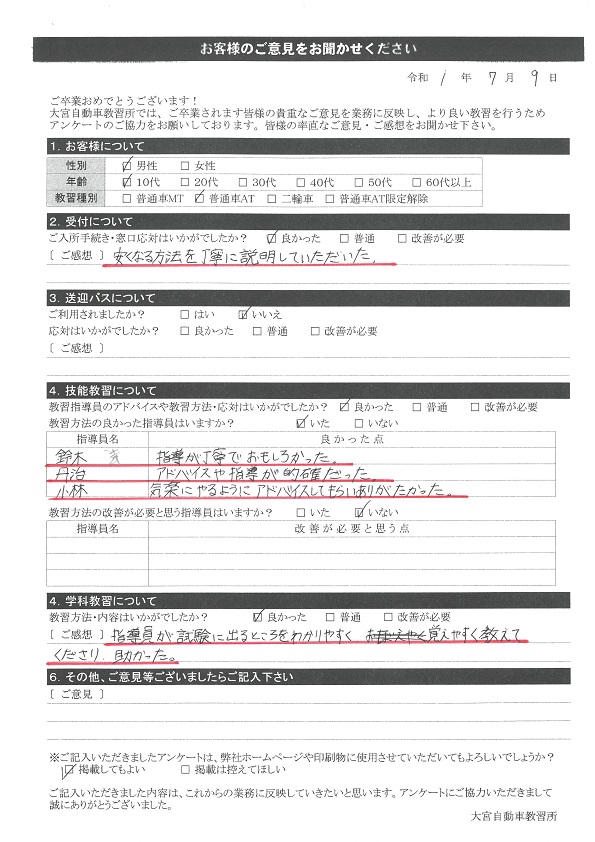 お客様のご意見をお聞かせください
令和 1 年 7 月 9 日
ご卒業おめでとうございます!
大宮自動車教習所では、ご卒業されます皆様の貴重なご意見を業務に反映し、より良い教習を行うため
アンケートのご協力をお願いしております。皆様の率直なご意見・ご感想をお聞かせ下さい。
1. お客様について
性別 ☑ 男性 □ 女性
年齢 ☑ 10代 □ 20代 □ 30代 □ 40代 □ 50代 □ 60代以上
教習種別 □ 普通車MT ☑ 普通車AT □ 二輪車 □ 普通車AT限定解除
2. 受付について
ご入所手続き・窓口応対はいかがでしたか? ☑ 良かった □ 普通 □ 改善が必要
〔 ご感想 〕 安くなる方法を丁寧に説明していただいた。
3. 送迎バスについて
ご利用されましたか? □ はい ☑ いいえ
応対はいかがでしたか? □ 良かった □ 普通 □ 改善が必要
〔 ご感想 〕
4. 技能教習について
教習指導員のアドバイスや教習方法・応対はいかがでしたか? ☑ 良かった □ 普通 □ 改善が必要
教習方法の良かった指導員はいますか? ☑ いた □ いない
指導員名 良かった点
鈴木 指導が丁寧でおもしろかった。
丹治 アドバイスや指導が的確だった。
小林 気楽にやるようにアドバイスしてもらいありがたかった。
教習方法の改善が必要と思う指導員はいますか? □ いた ☑ いない
指導員名 改善が必要と思う点
4. 学科教習について
教習方法・内容はいかがでしたか? ☑ 良かった □ 普通 □ 改善が必要
〔 ご感想 〕 指導員が試験に出るところをわかりやすく 覚えやすく教えて
くださり 助かった。
6. その他、ご意見等ございましたらご記入下さい
〔 ご意見 〕
※ご記入いただきましたアンケートは、弊社ホームページや印刷物に使用させていただいてもよろしいでしょうか?
☑ 掲載してもよい □ 掲載は控えてほしい
ご記入いただきました内容は、これからの業務に反映していきたいと思います。アンケートにご協力いただきまして
誠にありがとうございました。
大宮自動車教習所